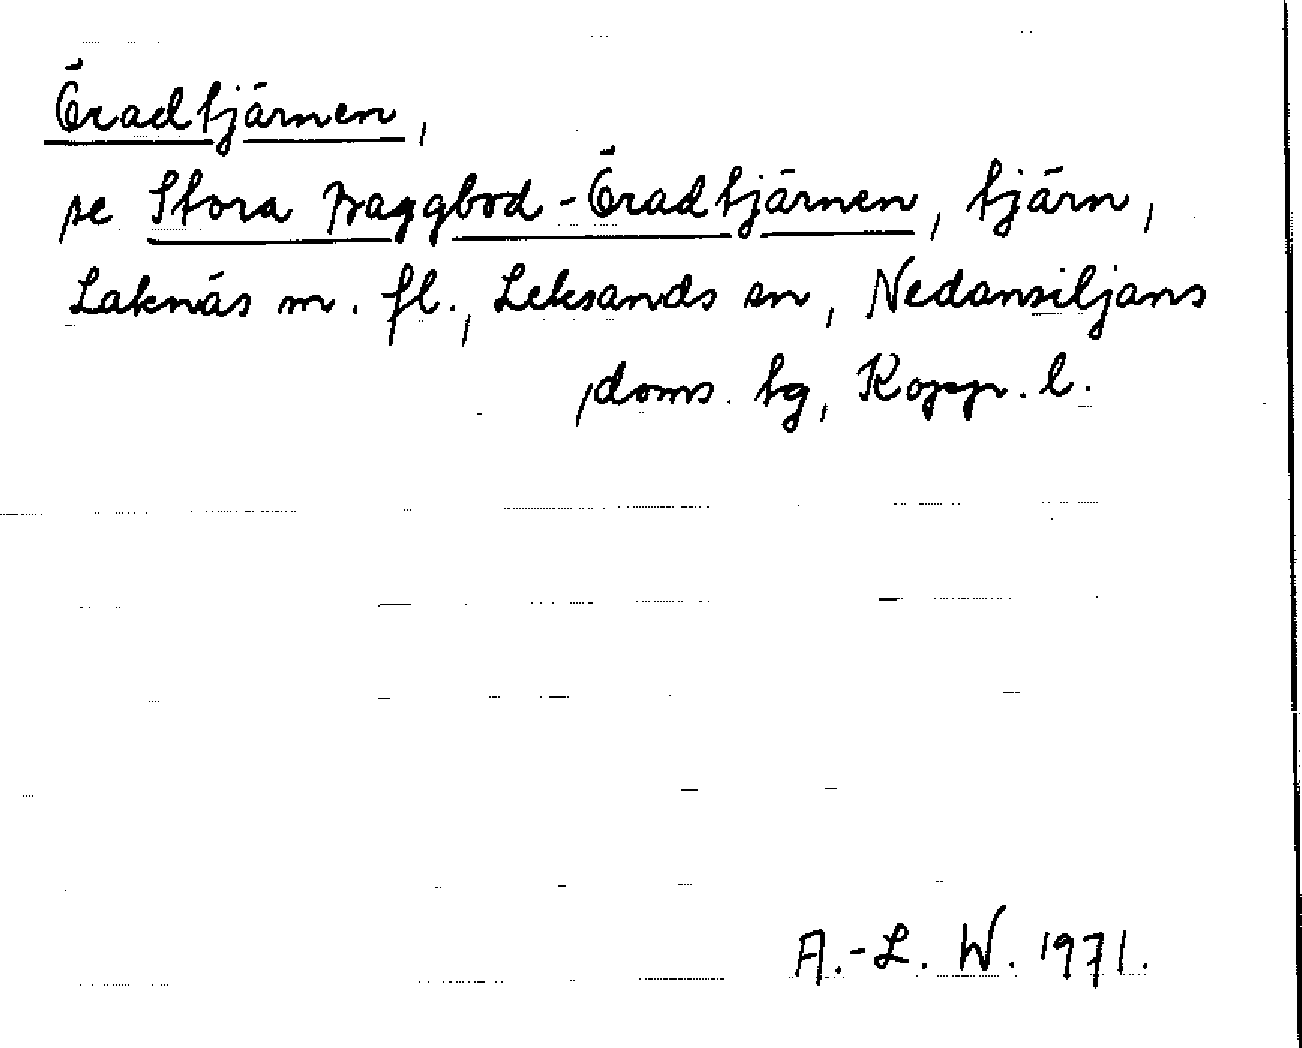 Öradtjärnen,
se Stora Baggbod-Öradtjärnen, tjärn,
Laknäs m. fl., Leksands sn, Nedansiljans
doms. tg, Kopp. l.
A.-L. W. 1971.